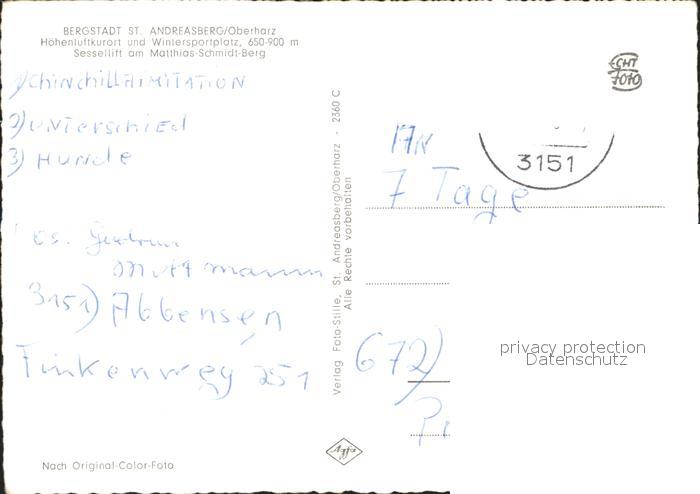 BERGSTADT ST. ANDREASBERG/Oberharz
Höhenluftkurort und Wintersportplatz, 650-900 m
Sessellift am Matthias-Schmidt-Berg
1) CHINCHILLAIMITATION
2) UNTERSCHIED
3) HUNDE
ES. Gertrum
Muttmann
3151) Abbensen
Finkenweg 251
Nach Original-Color-Foto
Verlag Foto-Stille, St. Andreasberg/Oberharz - 2360 C
Alle Rechte vorbehalten
Agfa
ECHT
FOTO
3151
AN
7 Tage
672)
privacy protection
Datenschutz